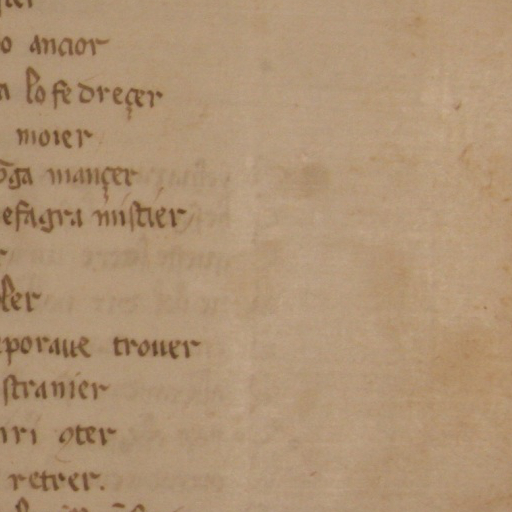 o ancior
lo fe dreçer
moier
ga mançer
e fa gra mistier
ler
poraue trouer
stranier
iri ꝯter
retrer.